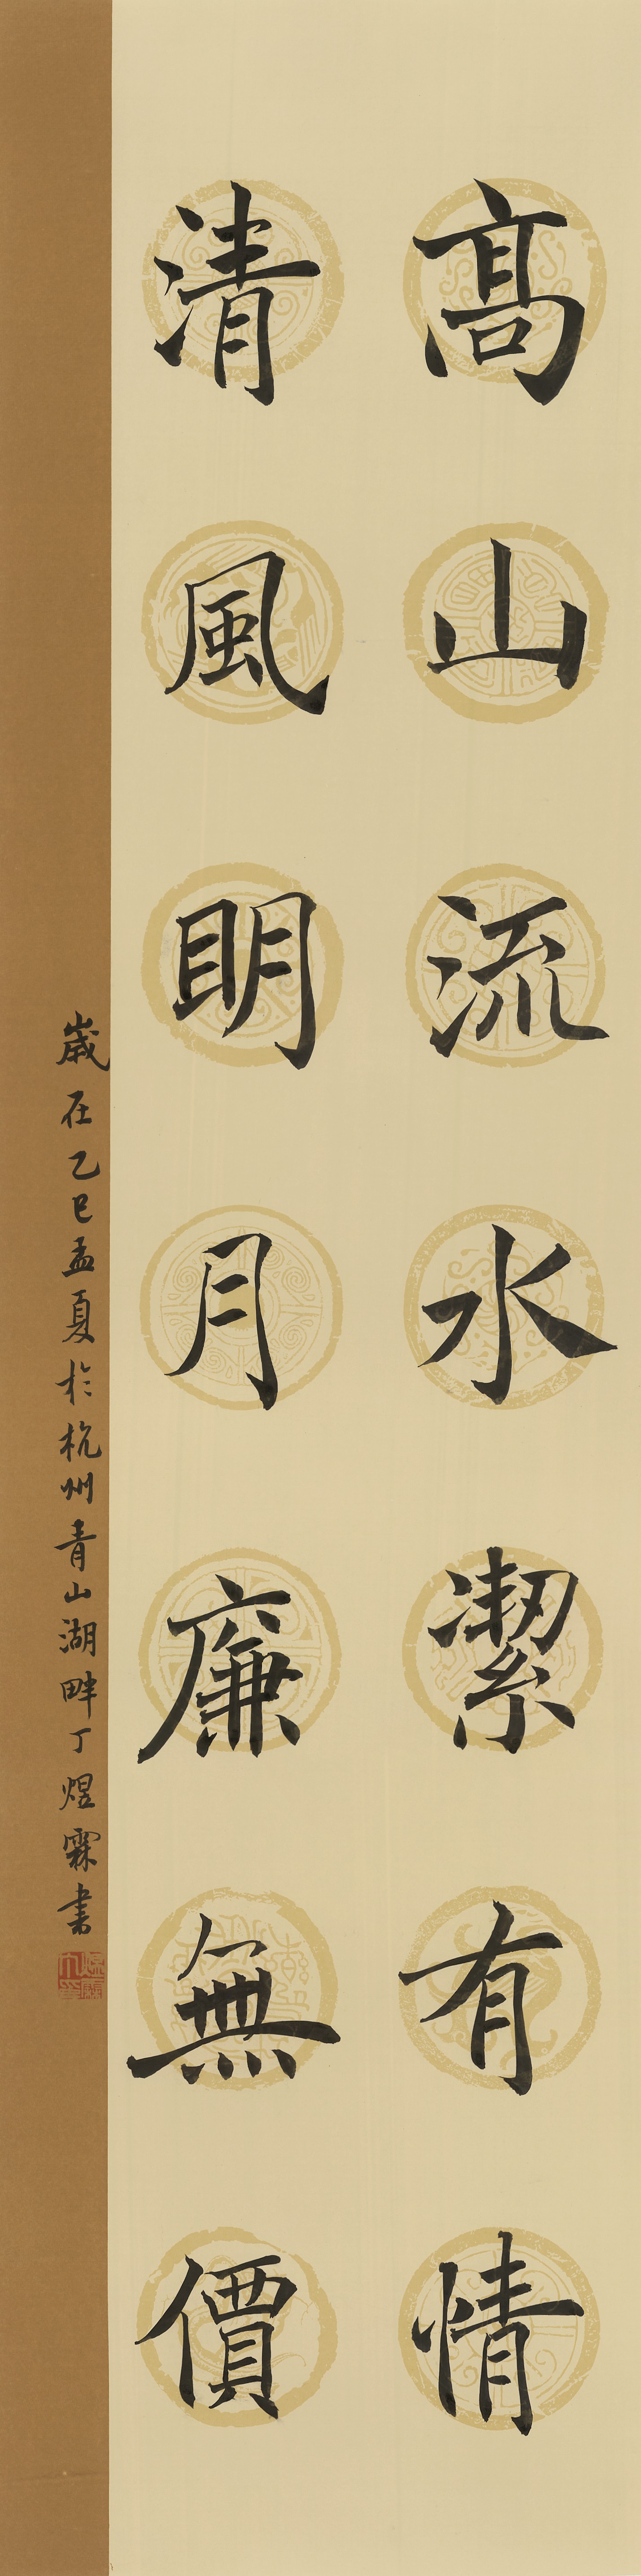 高山流水潔有情
清風明月廉無價
歲在乙巳孟夏於杭州青山湖畔丁煜霖书